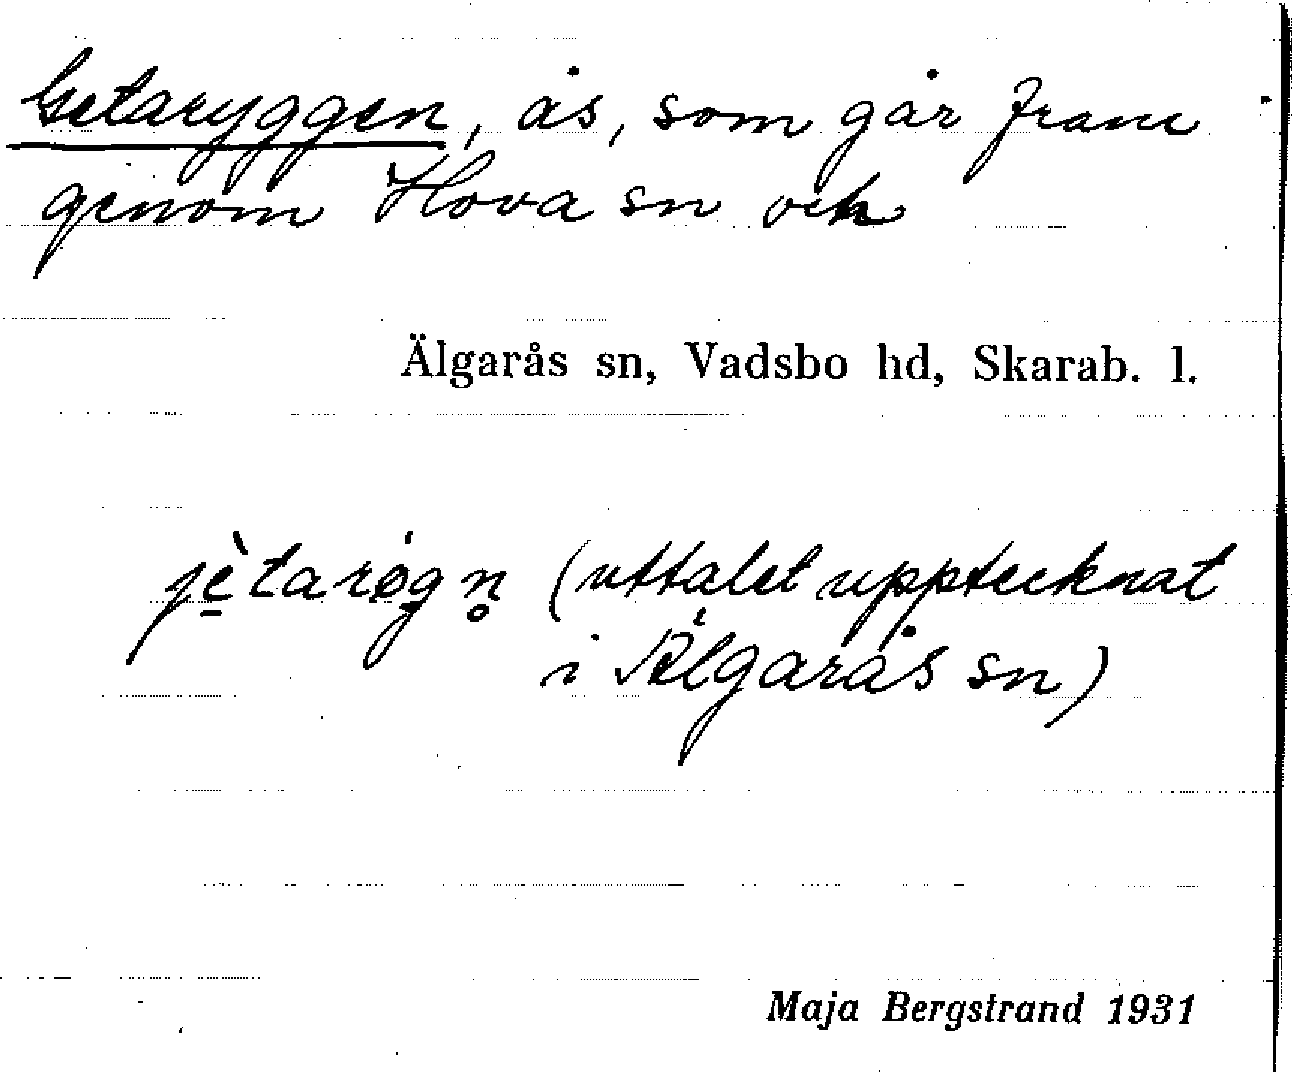 Getaryggen, ås, som går fram
genom Hova sn och
Älgarås sn, Vadsbo hd, Skarab. l.
jè̠tarǿgn̥ (uttalet upptecknat
i Älgarås sn)
Maja Bergstrand 1931